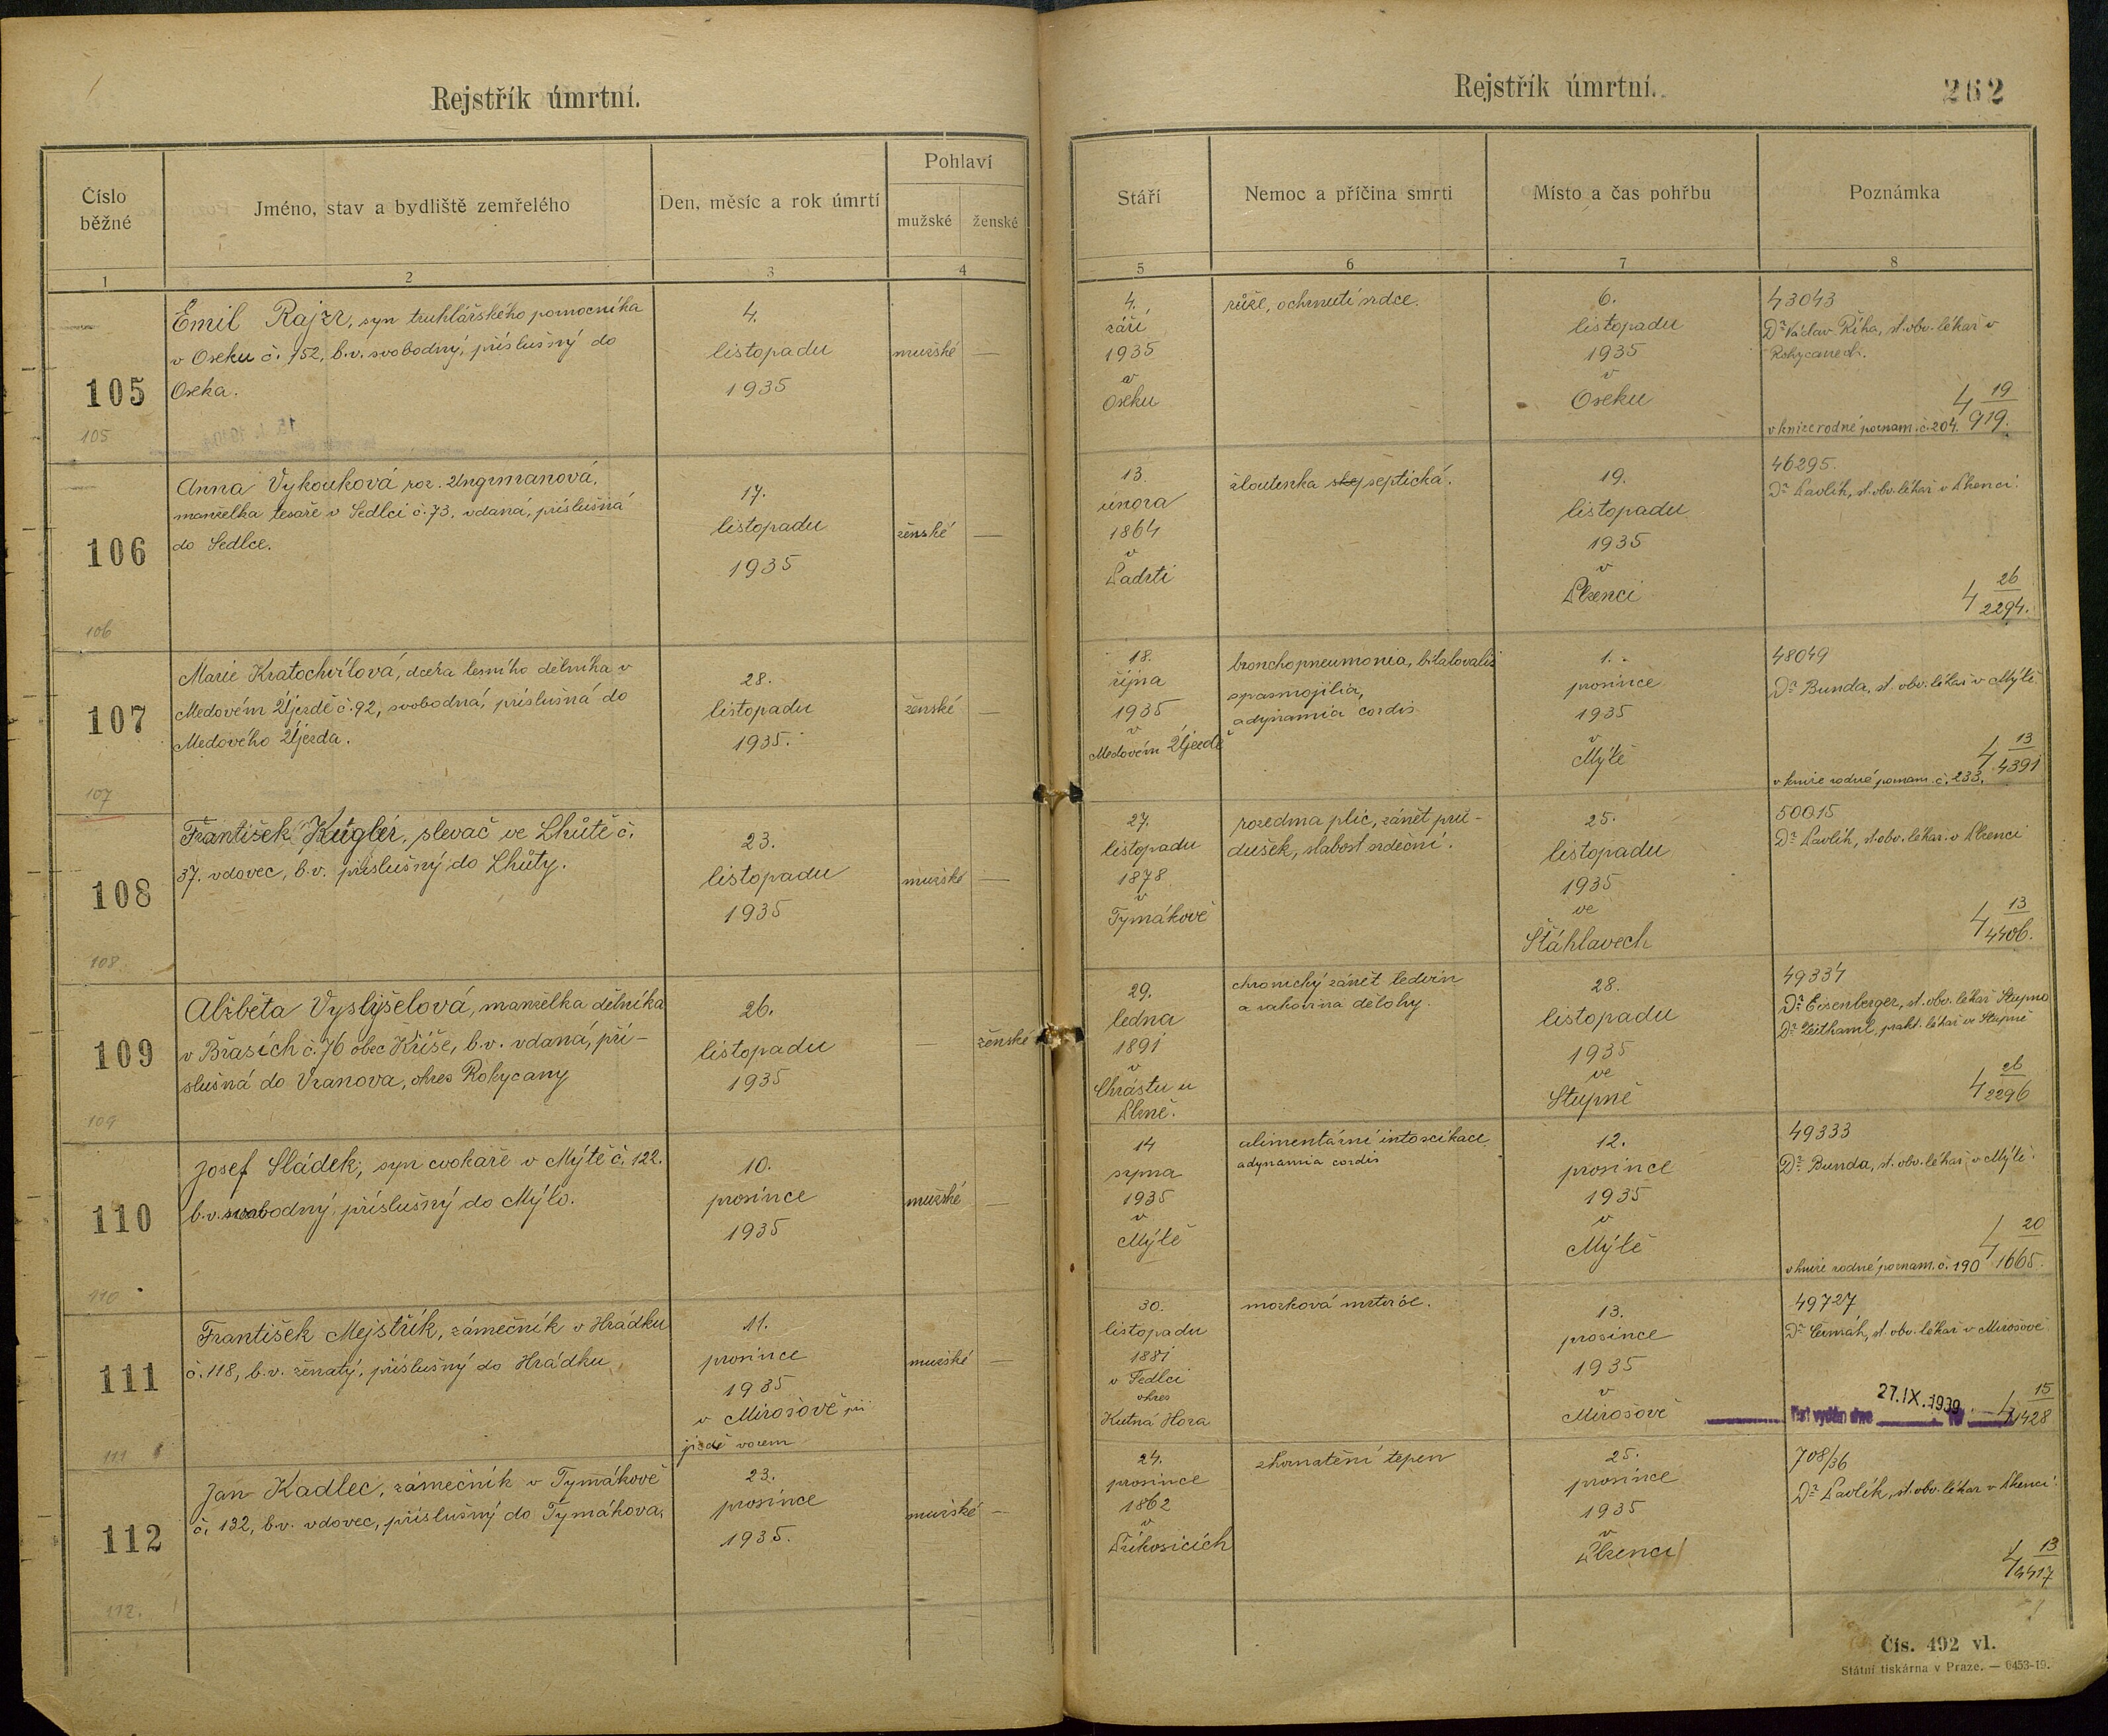 Rejstřík úmrtní.
Číslo běžné
Jméno, stav a bydliště zemřelého
Den, měsíc a rok úmrtí
Pohlaví
mužské
ženské
1
2
3
4
105
105
Emil Rajzr, syn truhlářského pomocníka
v Oseku č. 152, b.v. svobodný, příslušný do
Oseka.
4.
listopadu
1935
mužské —
106
106
Anna Vykouková roz. Ungrmanová,
manželka tesaře v Sedlci č. 73, vdaná, příslušná
do Sedlce.
17.
listopadu
1935
ženské —
107
107
Marie Kratochvílová, dcera lesního dělníka v
Medovém Újezdě č. 92, svobodná, příslušná do
Medového Újezda.
28.
listopadu
1935.
ženské —
108
108
František Kugler, slevač ve Lhůtě č.
37. vdovec, b.v. příslušný do Lhůty.
23.
listopadu
1935
mužské —
109
109
Alžběta Vyslyšelová, manželka dělníka
v Břasích č. 76 obec Kříše, b.v. vdaná, pří-
slušná do Vranova, okres Rokycany
26.
listopadu
1935
— ženské
110
110
Josef Sládek, syn cvokaře v Mýtě č. 122.
b.v. svobodný, příslušný do Mýta.
10.
prosince
1935
mužské —
111
111
František Mejstřík, zámečník v Hrádku
č. 118, b.v. ženatý, příslušný do Hrádku
11.
prosince
1935
v Mirošově při
jízdě vozem
mužské —
112
112.
Jan Kadlec, zámečník v Tymákově
č. 132, b.v. vdovec, příslušný do Tymákova.
23.
prosince
1935.
mužské —
Rejstřík úmrtní.
262
Stáří
Nemoc a příčina smrti
Místo a čas pohřbu
Poznámka
5
6
7
8
4.
září
1935
v
Oseku
růže, ochrnutí srdce.
6.
listopadu
1935
v
Oseku
43043
Dr Václav Říha, st. obv. lékař v
Rokycanech.
4 19
919.
v knize rodné poznam. č. 204.
13.
února
1864
v
Padrti
žloutenka septická.
19.
listopadu
1935
v
Plzenci
46295.
Dr Pavlík, st. obv. lékař v Plzenci.
4 26
2294.
18.
října
1935
v
Medovém Újezdě
bronchopneumonia,
spasmofilia,
adynamia cordis
1.
prosince
1935
v
Mýtě
48049
Dr Bunda, st. obv. lékař v Mýtě.
4 13
4391
v knize rodné poznam. č. 233.
27.
listopadu
1878
v
Tymákově
rozedma plic, zánět prů-
dušek, slabost srdeční.
25.
listopadu
1935
ve
Šťáhlavech
50015
Dr Pavlík, st. obv. lékař v Plzenci
4 13
4406.
29.
ledna
1891
v
Chrástu u
Plzně.
chronický zánět ledvin
a rakovina dělohy.
28.
listopadu
1935
ve
Stupně
49334
Dr Eisenberger, st. obv. lékař Stupno
Dr Leithaml, prakt. lékař ve Stupně
4 26
2296
14
srpna
1935
v
Mýtě
alimentární intoxikace
adynamia cordis
12.
prosince
1935
v
Mýtě
49333
Dr Bunda, st. obv. lékař v Mýtě.
4 20
1665.
v knize rodné poznam. č. 190
30.
listopadu
1881
v Sedlci
okres
Kutná Hora
mozková mrtvice.
13.
prosince
1935
v
Mirošově
49727
Dr Čermák, st. obv. lékař v Mirošově
27.IX.1939
List vydán dne 19
4 15
1428
24.
prosince
1862
v
Příkosicích
zkornatění tepen
25.
prosince
1935
v
Plzenci
708/36
Dr Pavlík, st. obv. lékař v Plzenci.
4 13
4417
Čís. 492 vl.
Státní tiskárna v Praze. — 6453-19.